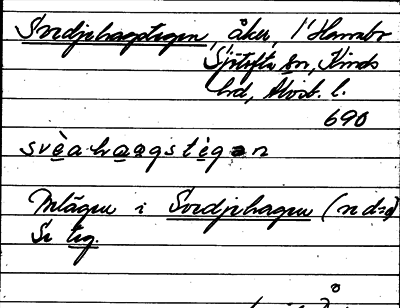 Svedjehagstegen, åker, 1' Hannabo
Sjötofta sn, Kinds
hd, Älvsb. l.
690
svèahaagstègen
Inlägor i Svedjehagen (nds)
Se teg.